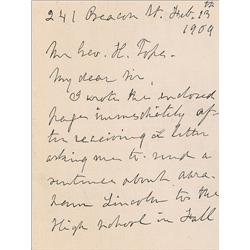 241 Beacon St. Feb. 13th
1909
Mr Geo. H. Tope.
My dear Sir,
I wrote the enclosed
pages immediately af-
ter receiving a letter
asking me to send a
sentence about Abra-
ham Lincoln to the
High School in Fall